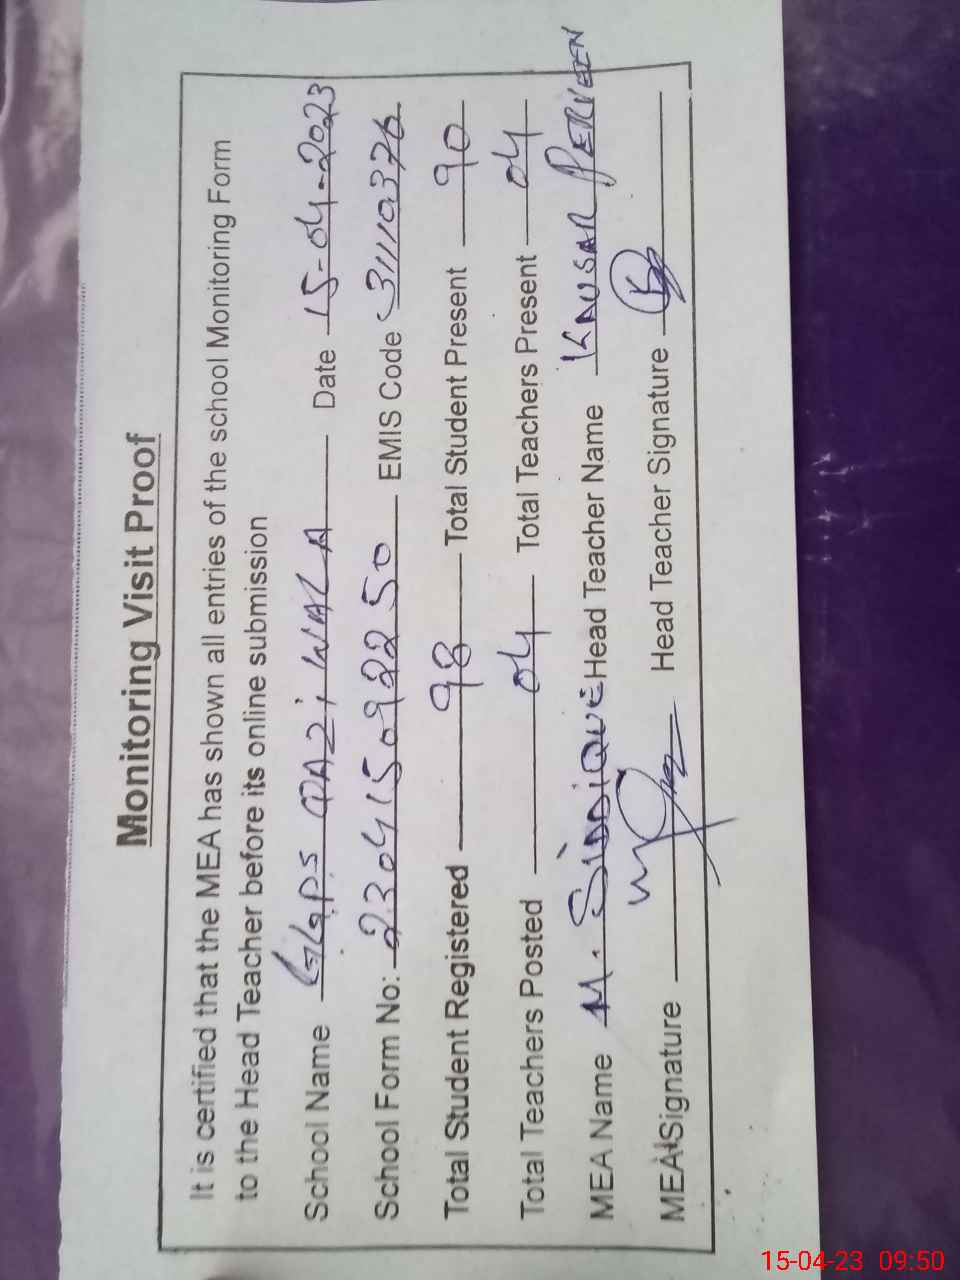 Monitoring Visit Proof
It is certified that the MEA has shown all entries of the school Monitoring Form
to the Head Teacher before its online submission
School Name GGPS QAZi WALA Date 15-04-2023
School Form No: 230415092250 EMIS Code 31110376
Total Student Registered 98 Total Student Present 90
Total Teachers Posted 04 Total Teachers Present 04
MEA Name M. SiDDiQUE Head Teacher Name KAUSAR PERVEEN
MEA Signature Head Teacher Signature
15-04-23 09:50